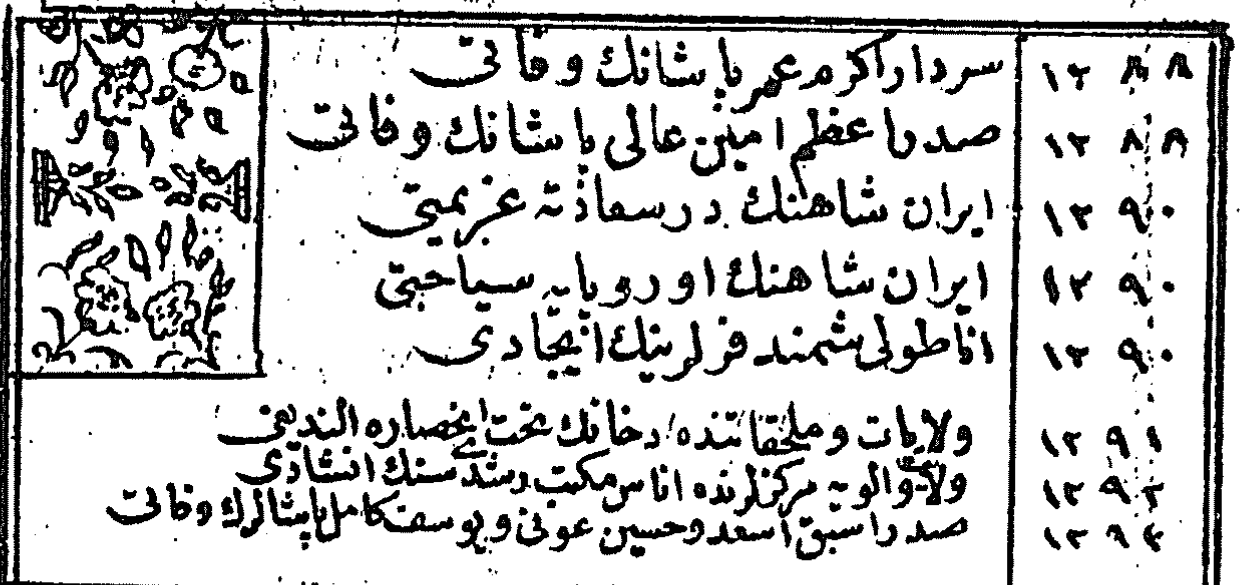 سردار اكرم عمر پاشانك وفاتى ١٢٨٨
صدر اعظم امين عالى پاشانك وفاتى ١٢٨٨
ايران شاهنك درسعادته عزيمتى ١٢٩٠
ايران شاهنك اوروپايه سياحتى ١٢٩٠
اناطولى شمندفرلرينك ايجادى ١٢٩٠
ولايات و ملحقاتنده دخانك تحت انحصاره النديغى ١٢٩١
ولايت والويه مركزلرنده اناس مكتب رشديسنك انشادى ١٢٩٢
صدر اسبق اسعد وحسين عونى ويوسف كامل پاشالرك وفاتى ١٢٩٤